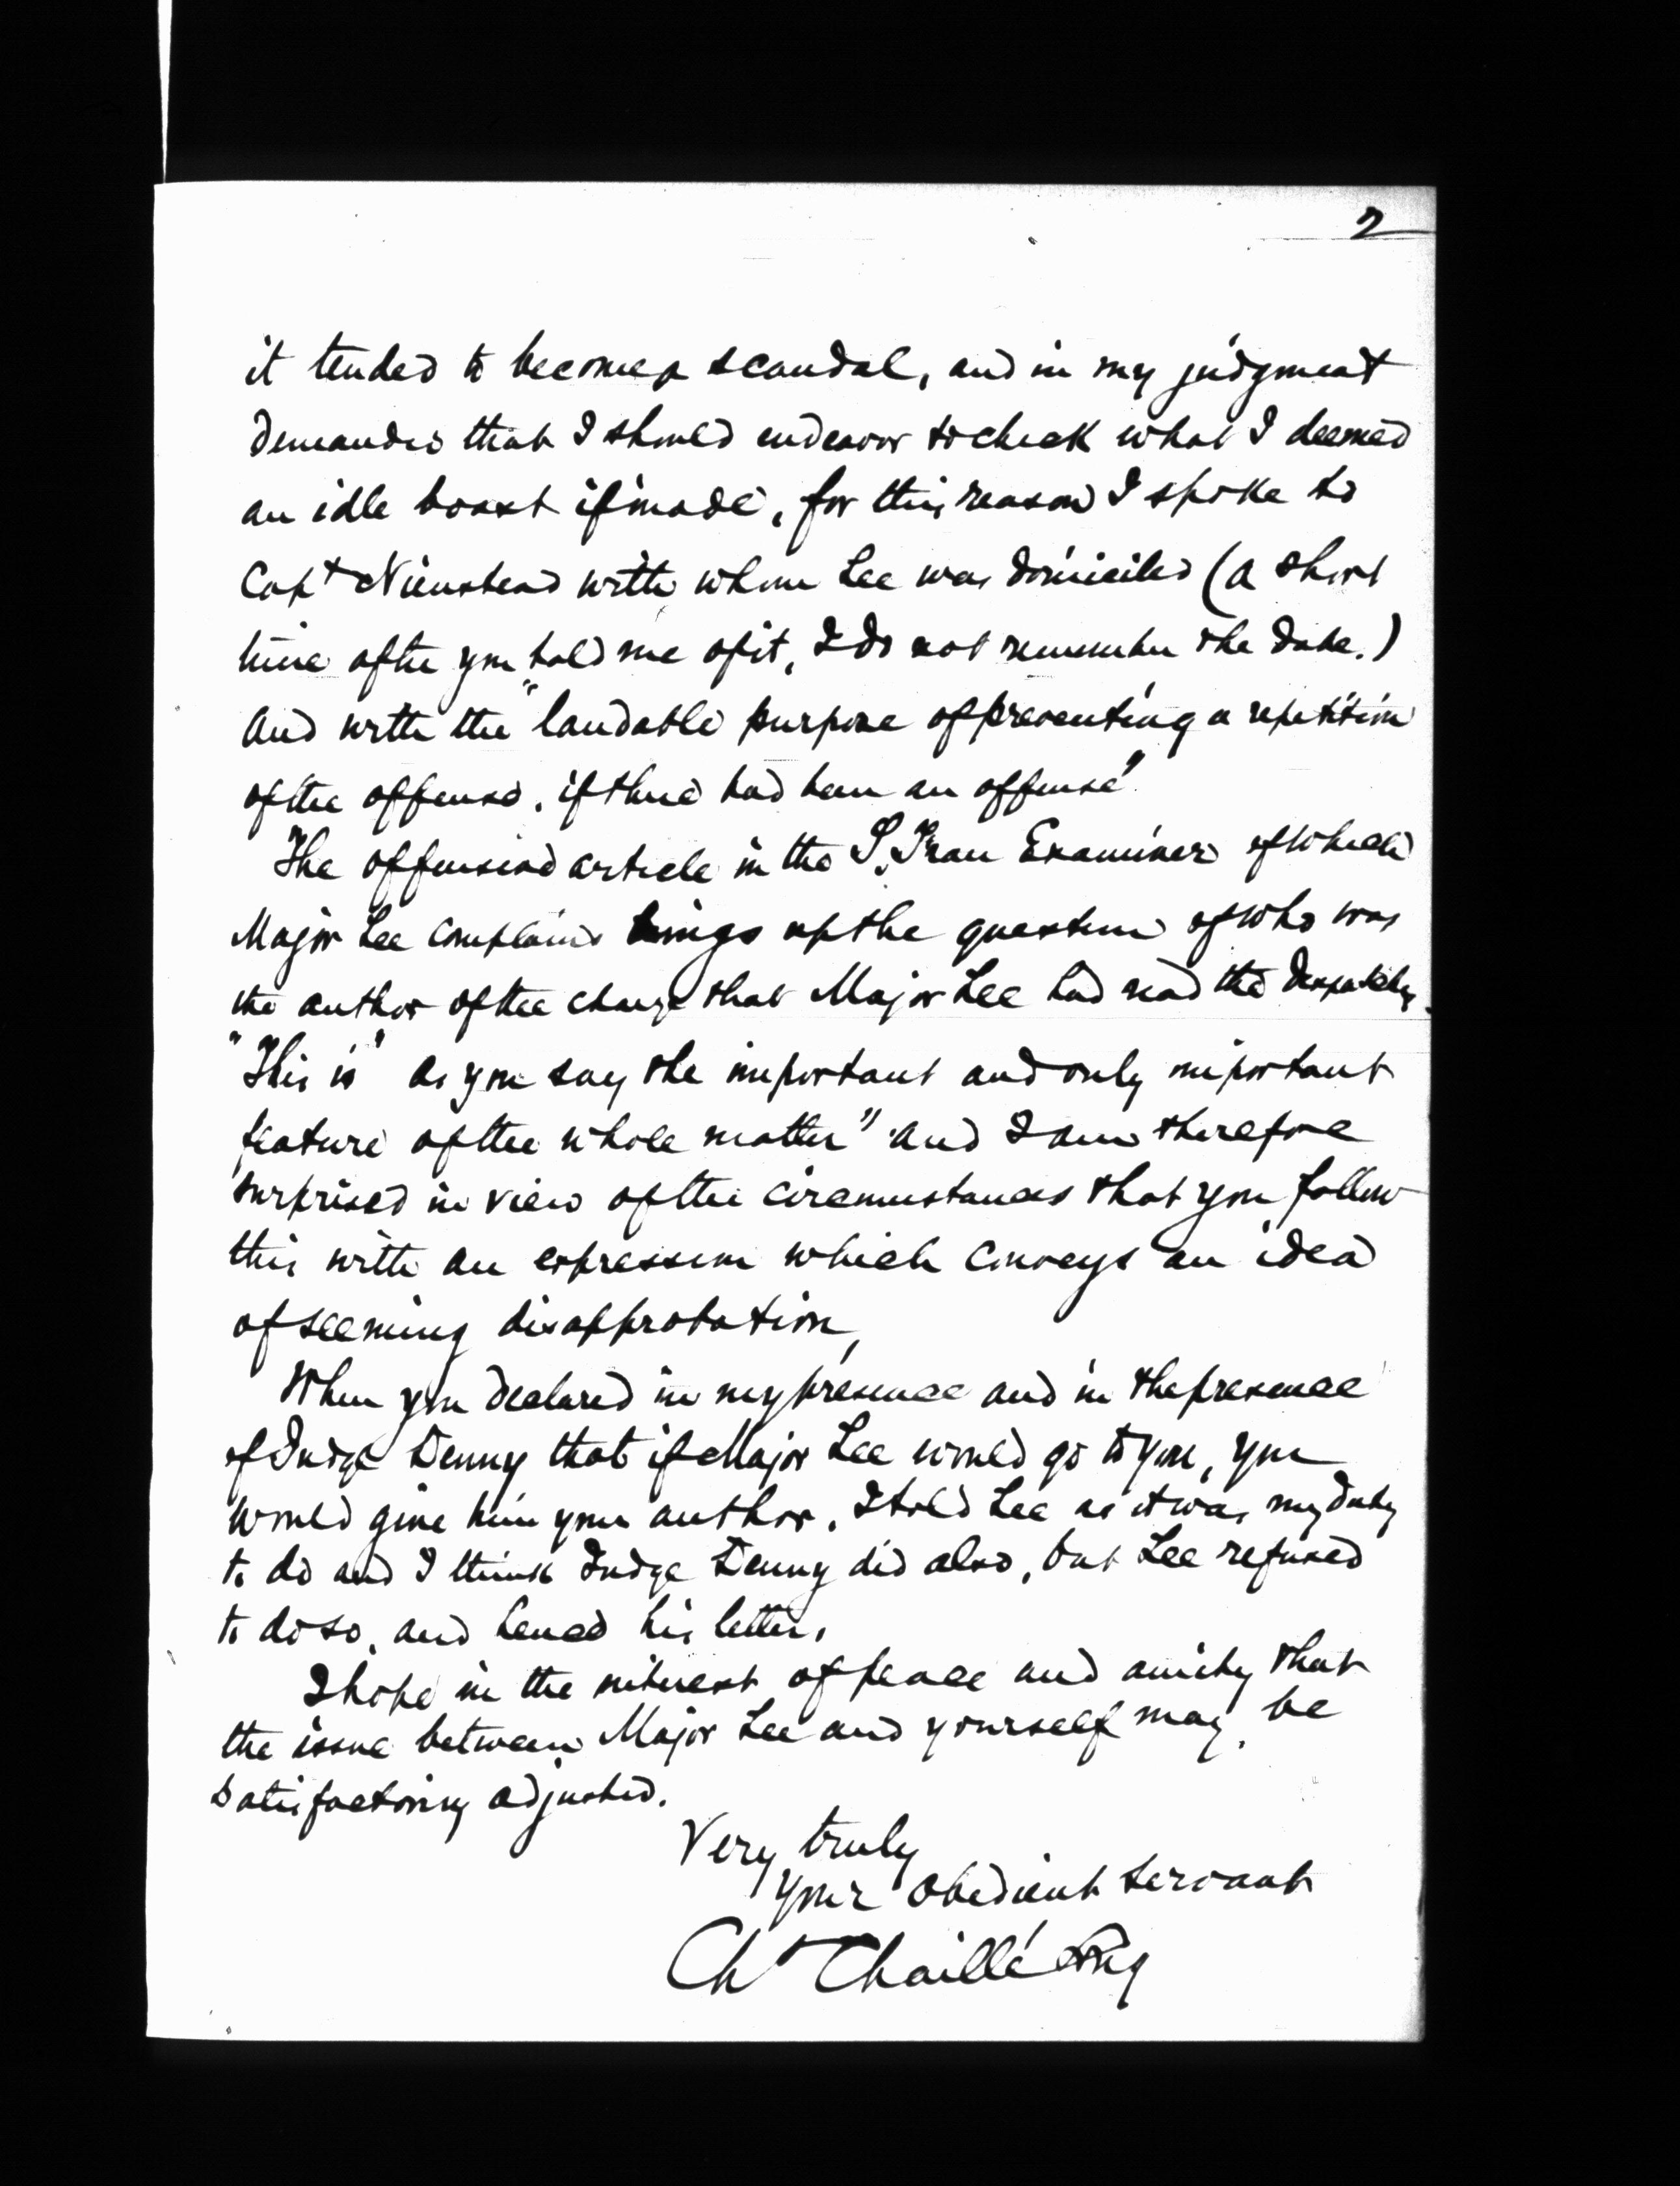 2
it tended to become a scandal, and in my judgment
demanded that I should endeavor to check what I deemed
an idle boast if made, for this reason I spoke to
Capt Nienstead with whom Lee was domiciled (a short
time after you told me of it, I do not remember the date.)
and with the "laudable purpose of preventing a repetition
of the offense, if there had been an offense"
The offensive article in the S. Fran Examiner of which
Major Lee complains brings up the question of who was
the author of the charge that Major Lee had read the despatches.
"This is" as you say the important and only important
feature of the whole matter" and I am therefore
surprised in view of the circumstances that you follow
this with an expression which conveys an idea
of seeming disapprobation,
When you declared in my presence and in the presence
of Judge Denny that if Major Lee would go to you, you
would give him your author, I told Lee as it was my duty
to do and I think Judge Denny did also, but Lee refused
to do so, and hence his letter,
I hope in the interest of peace and amity that
the issue between Major Lee and yourself may be
satisfactorily adjusted.
Very truly
Your obedient servant
Ch Chaillé Long